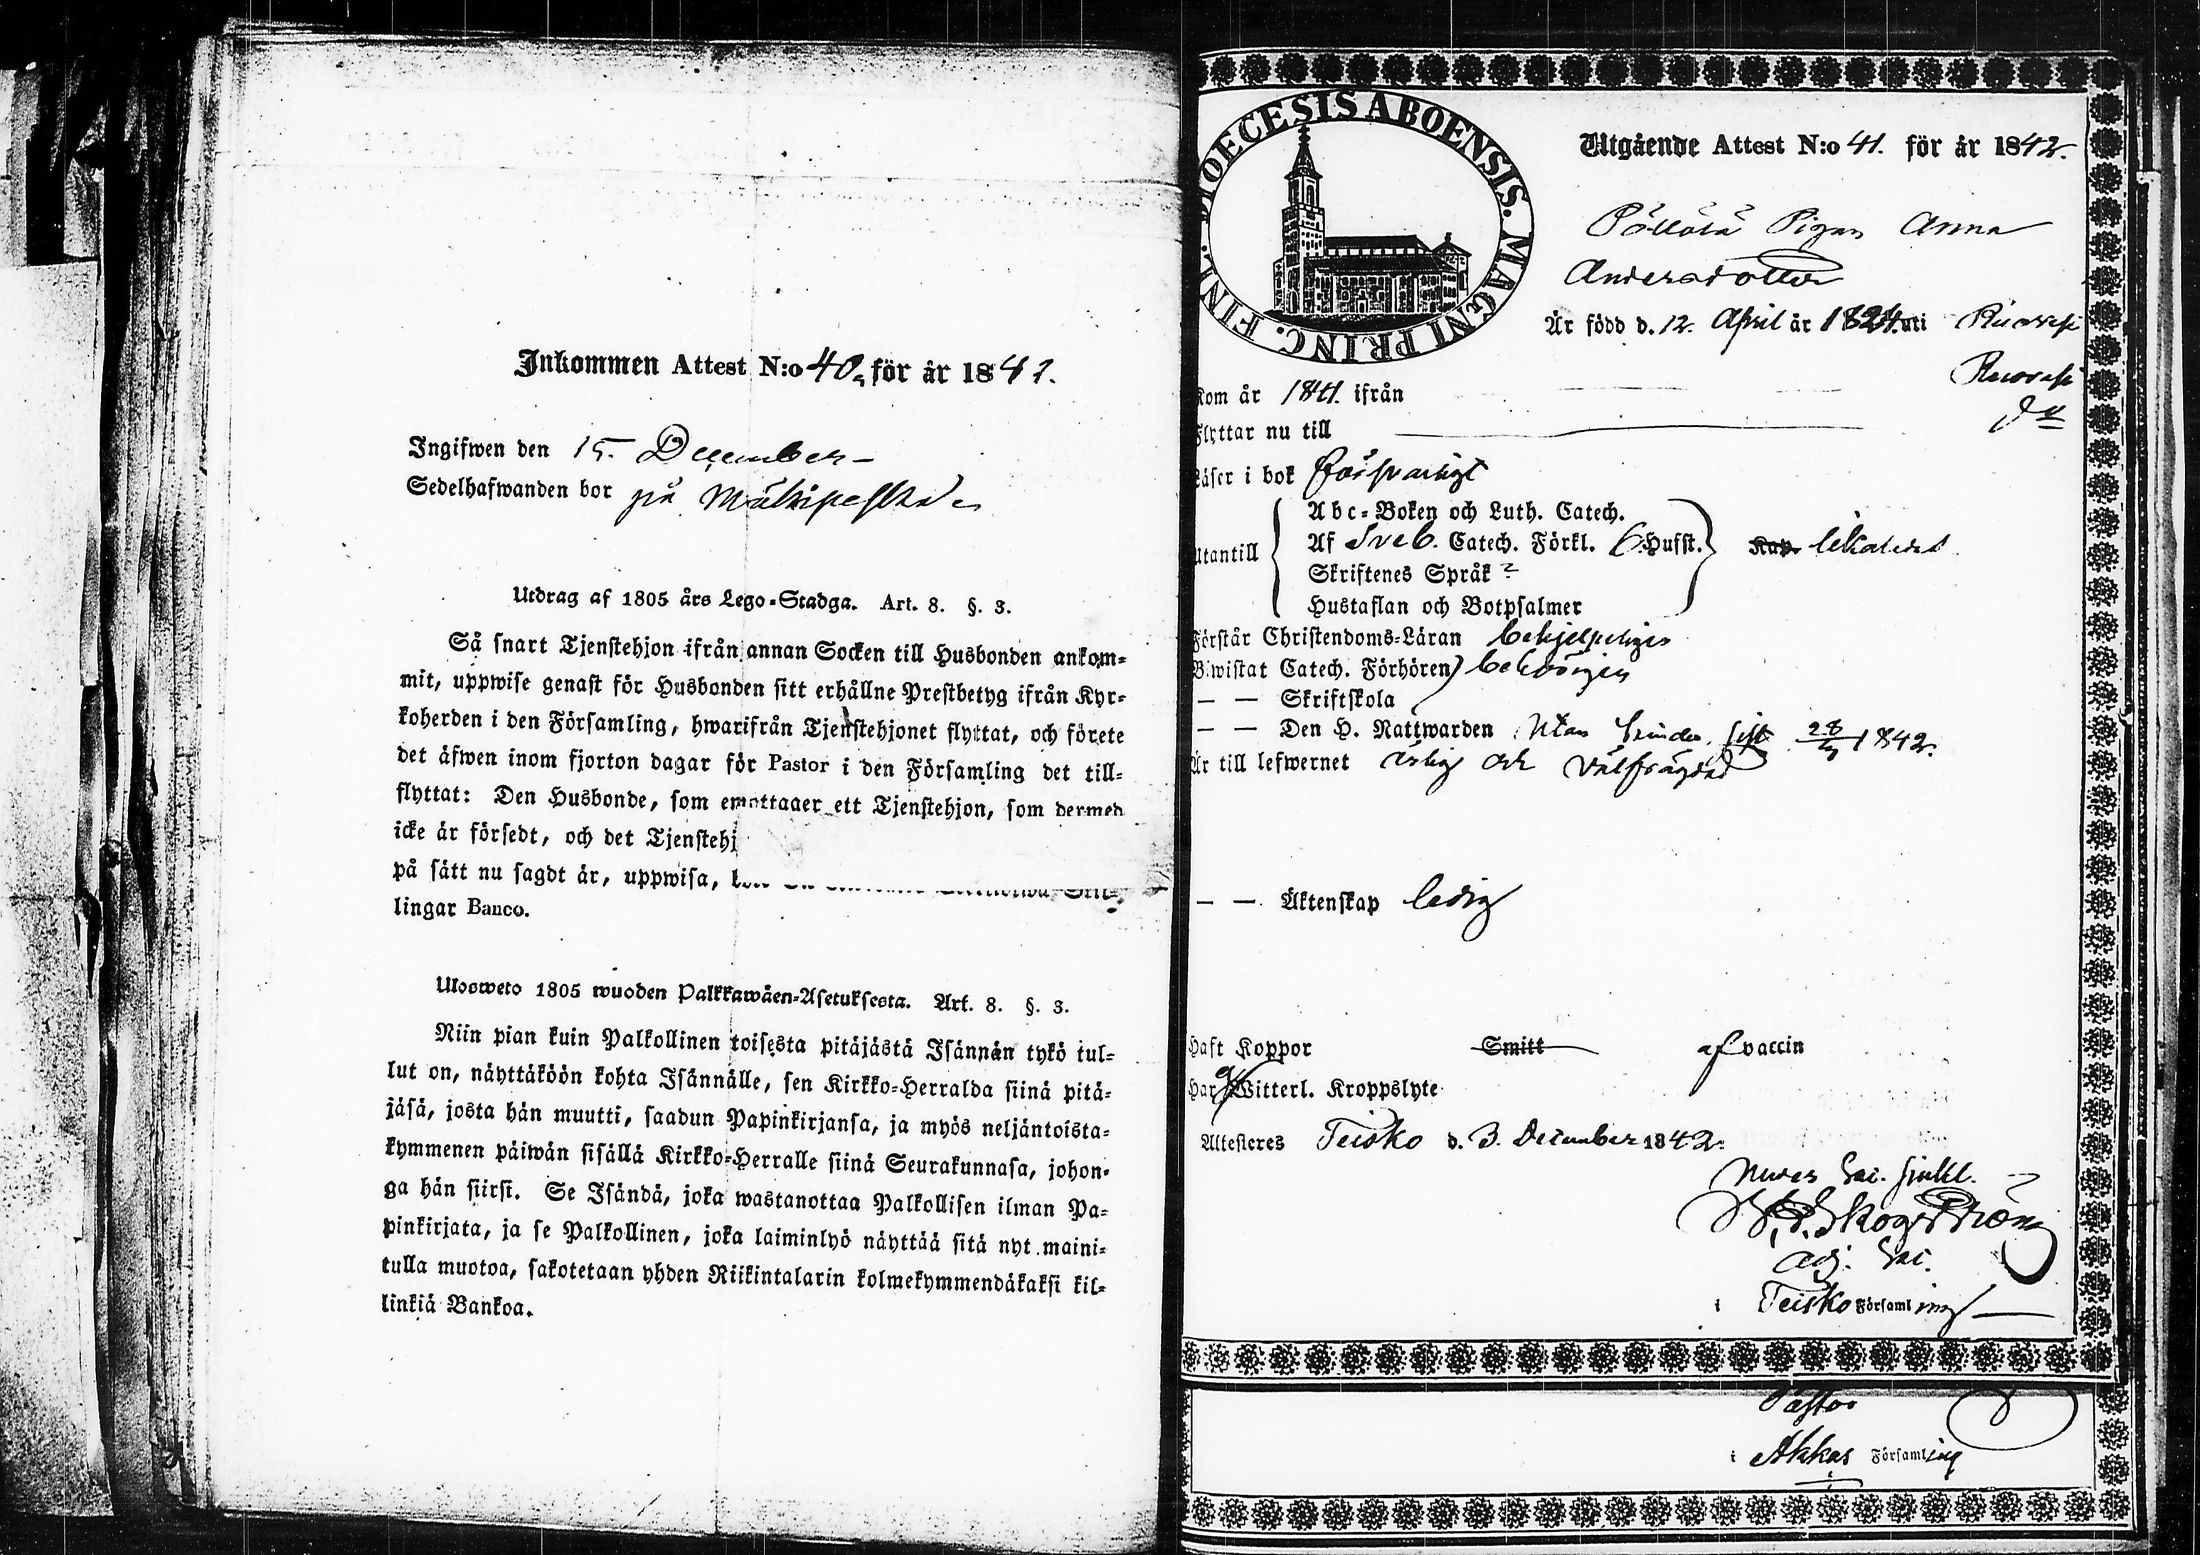 Inkommen Attest N:o 40. för år 1842.
Ingifwen den 15. December
Sedelhafwanden bor på
Utdrag af 1805 års Lego-Stadga. Art. 8. §. 3.
Så snart Tjenstehjon ifrån annan Socken till Husbonden ankom-
mit, uppwise genast för Husbonden sitt erhållne Prestbetyg ifrån Kyr-
koherden i den Församling, hwarifrån Tjenstehjonet flyttat, och förete
det äfwen inom fjorton dagar för Pastor i den Församling det till-
flyttat: Den Husbonde, som emottager ett Tjenstehjon, som dermed
icke är försedt, och det Tjenstehj
på sätt nu sagdt är, uppwisa,
lingar Banco.
Ulosweto 1805 wuoden Palkkawäen-Asetuksesta. Art. 8. §. 3.
Niin pian kuin Palkollinen toisesta pitäjästä Isännän tykö tul-
lut on, näyttäköön kohta Isännälle, sen Kirkko-Herralda siinä pitä-
jäsä, josta hän muutti, saadun Papinkirjansa, ja myös neljäntoista-
kymmenen päiwän sisällä Kirkko-Herralle siinä Seurakunnasa, johon-
ga hän siirsi. Se Isändä, joka wastanottaa Palkollisen ilman Pa-
pinkirjata, ja se Palkollinen, joka laiminlyö näyttää sitä nyt maini-
tulla muotoa, sakotetaan yhden Riikintalarin kolmekymmendäkaksi kil-
linkiä Bankoa.
DIOECESIS ABOENSIS. MAGNI PRINC. FINL.
Utgående Attest N:o 41. för år 1842.
Pigan Anna
Andersdotter
Är född d. 12. April år 1824. uti Ruovesi
Ruovesi
Kom år 1841. ifrån
Flyttar nu till
Läser i bok försvarligt
Abc-Boken och Luth. Catech.
Utantill Af Sveb. Catech. Förkl. Hufst. Kap.
Skriftenes Språk
Hustaflan och Botpsalmer
Förstår Christendoms-Läran behjelpligen
Biwistat Catech. Förhören behörigen
— — Skriftskola
— — Den H. Nattwarden utan hinder sist 28/9 1842.
Är till lefwernet ärlig och välfrägdad
— — Äktenskap ledig
Haft Koppor Smitt af vaccin
Har ej Witterl. Kroppslyte
Attesteres Teisko d. 3. December 1842.
Skogström
adj. Sac.
i Teisko Församling
Pastor
i Akkas Församling